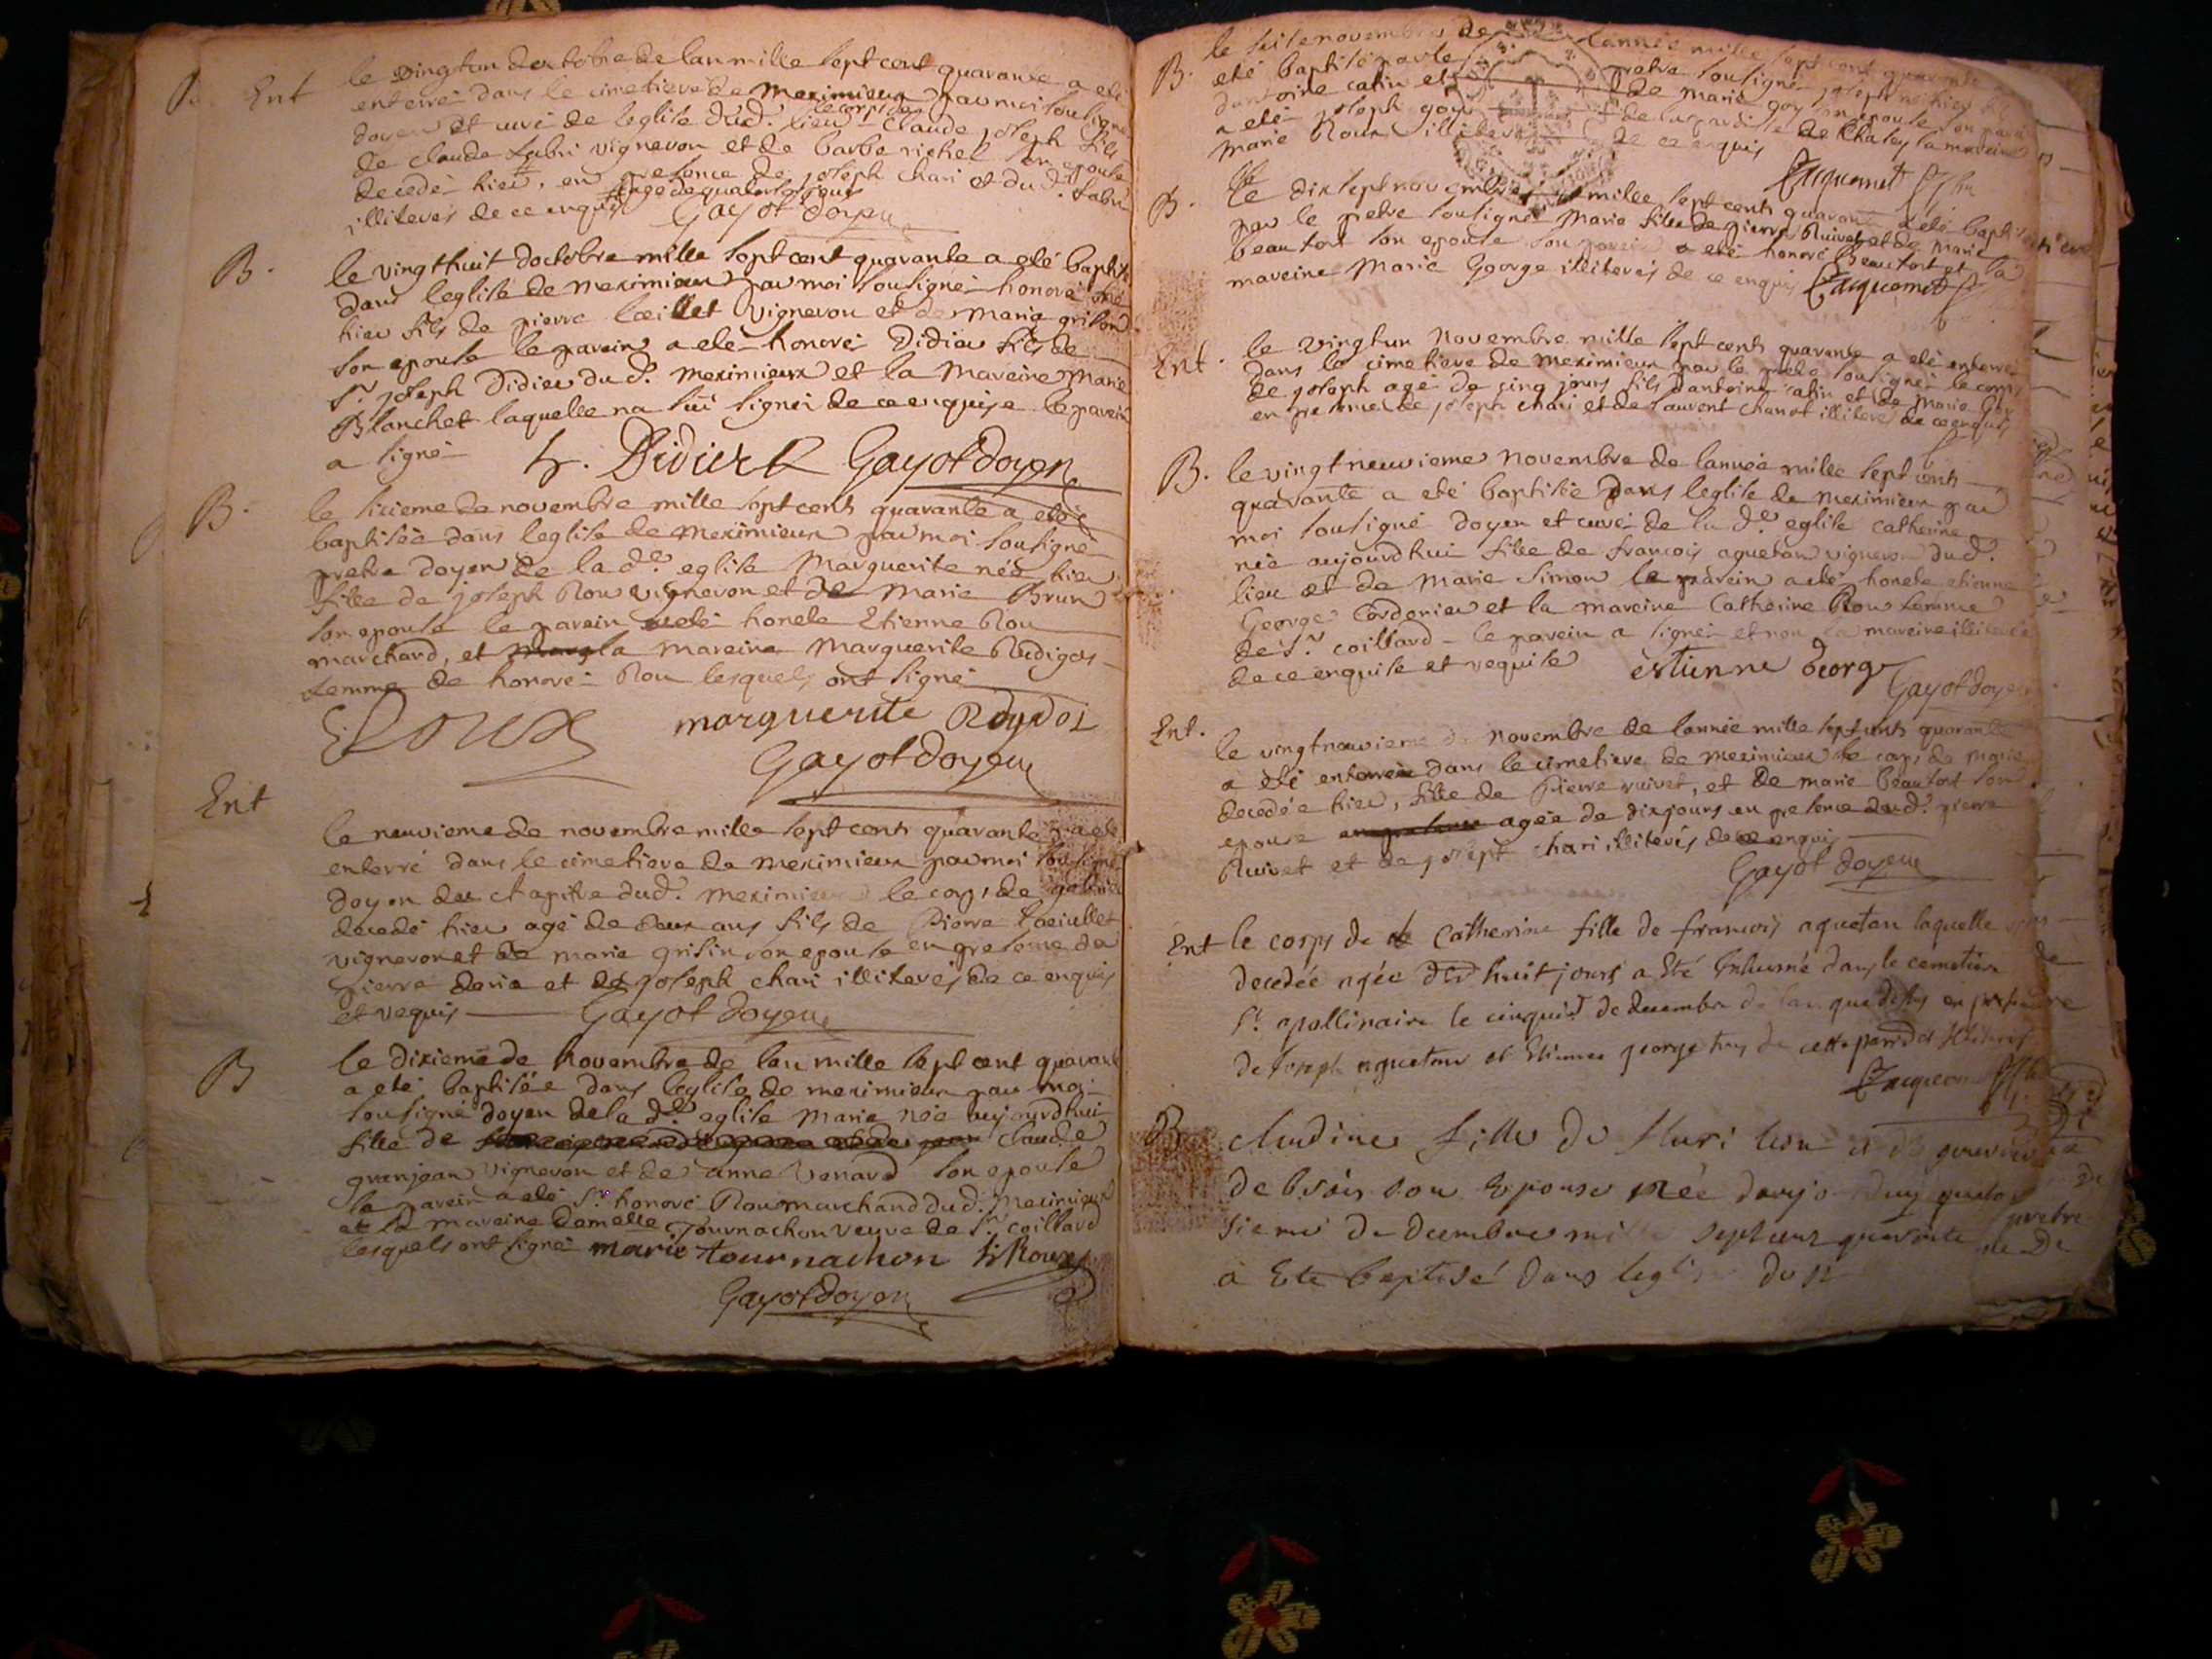 Ent le vingt un doctobre de lan mille sept cent quarante a eté
enterré dans le cimetiere de meximieux par moi soussigné
doyen et curé de leglise dud. lieu le corps de claude joseph fils
de claude fabri vigneron et de barbe richel son epouse
decedé hier, en presence de joseph chari et du d. fabri
illiterés de ce enquis agé de quatorse jours Gayot doyen
B. le vingt huit doctobre mille sept cent quarante a eté baptisé
dans leglise de meximieux par moi soussigné honoré né
hier fils de pierre loeillet vigneron et de marie grison
son epouse le parein a eté honoré Didier fils de
Sr. joseph Didier du d. meximieux et la mareine marie
Blanchet laquelle na sui signer de ce enquise le parein
a signé h. Didier Gayot doyen
B. le sixieme de novembre mille sept cents quarante a eté
baptisée dans leglise de meximieux par moi soussigné
pretre doyen de la de. eglise Marguerite née hier
fille de joseph Rou vigneron et de marie Brun
son epouse le parein a eté honete Etienne Rou
marchand, et marg la mareine Marguerite Rudigos
femme de honoré Rou lesquels ont signé
E Roux marguerite Rdydos
Gayot doyen
Ent
le neuvieme de novembre mille sept cents quarante a eté
enterré dans le cimetiere de meximieux par moi soussigné
doyen du chapitre dud. meximieux le corps de
decedé hier agé de deux ans fils de Pierre Loeiullet
vigneron et de marie grisin son epouse en presence de
pierre derie et de joseph chari illiterés de ce enquis
et requis Gayot doyen
B le dixieme de novembre de lan mille sept cent quarante
a eté baptisée dans leglise de meximieux par moi
soussigné doyen de la de. eglise marie née aujourdhui
fille de claude
granjean vigneron et de anne venard son epouse
le parein a eté Sr. honoré Rou marchand dud. meximieux
et la mareine demelle tournachon veuve de Sr. coillard
lesquels ont signé marie tournachon h Roux
Gayot doyen
B. le seise novembre de lannée mille sept cent quarante
eté baptisé par le pretre soussigné joseph
dantoine catin et de marie goy son epouse, son parein
a eté joseph goy de chaley sa mareine
marie Roux illiterés de ce enquis
Jacquemet
B. le dix sept novembre mille sept cents quarante a eté baptisée
par le pretre soussigné marie fille de pierre Ruivet et de marie
beaufort son epouse son parein a eté honoré Beaufort et la
mareine marie George illiterés de ce enquis Jacquemet
Ent. le vingt un novembre mille sept cents quarante a eté enterré
dans le cimetiere de meximieux par le pretre soussigné le corps
de joseph agé de cinq jours fils dantoine catin et de marie Goy
en presence de joseph chari et de laurent chanot illiterés de ce enquis
B. le vingt neuvieme novembre de lannée mille sept cents
quarante a eté baptisée dans leglise de meximieux par
moi soussigné doyen et curé de la de. eglise catherine
née aujourdhui fille de francois aquetan vigneron dud.
lieu et de marie simon le parein a eté honete etienne
George Cordonier et la mareine Catherine Rou femme
de Sr. coillard le parein a signé et non la mareine illiterée
de ce enquise et requise estienne george
Gayot doyen
Ent. le vingt neuvieme de novembre de lannée mille sept cents quarante
a eté enterrée dans le cimetiere de meximieux le corps de marie
decedée hier, fille de Pierre ruivet, et de marie beaufort son
epouse agée de dix jours en presence dud. pierre
Ruivet et de joseph chari illiterés de ce enquis
Gayot doyen
Ent le corps de Catherine fille de francois aquetan laquelle
decedée agée de huit jours a Eté Inhumé dans le cemetiere de
St. apollinaire le cinquie de decembre de lan que dessus en presence
de Joseph aquetan et Etienne george
Jacquemet
B claudine fille de
son Epouse née daujourduy
sieme de decembre mille sept cens quarante
a Eté baptisé dans leglise